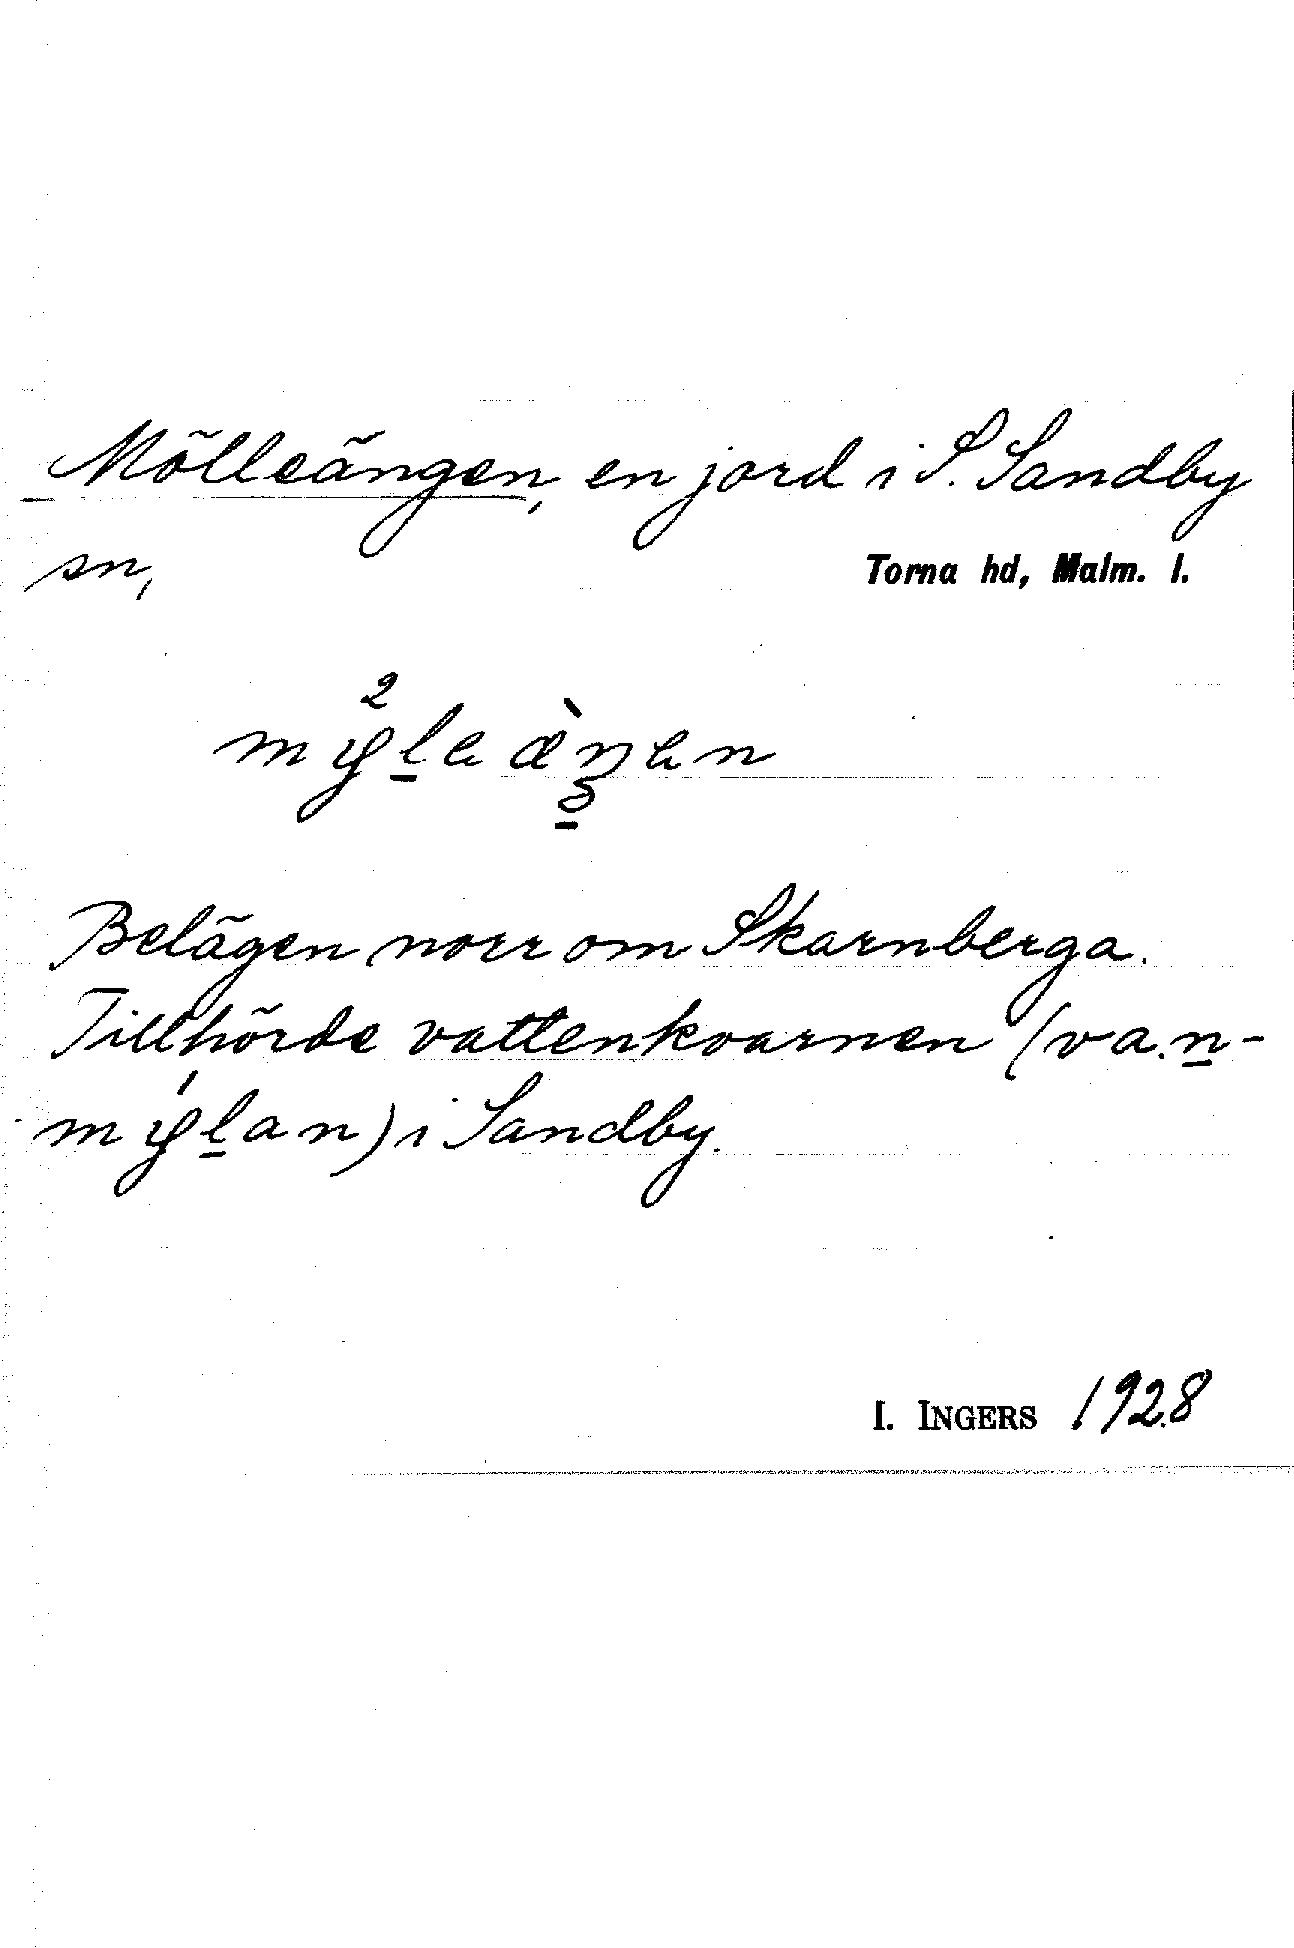 Mölleängen, en jord i S. Sandby
sn,
Torna hd, Malm. l.
Belägen norr om Skarnberga.
Tillhörde vattenkvarnen (va.n-
i Sandby.
I. INGERS 1928